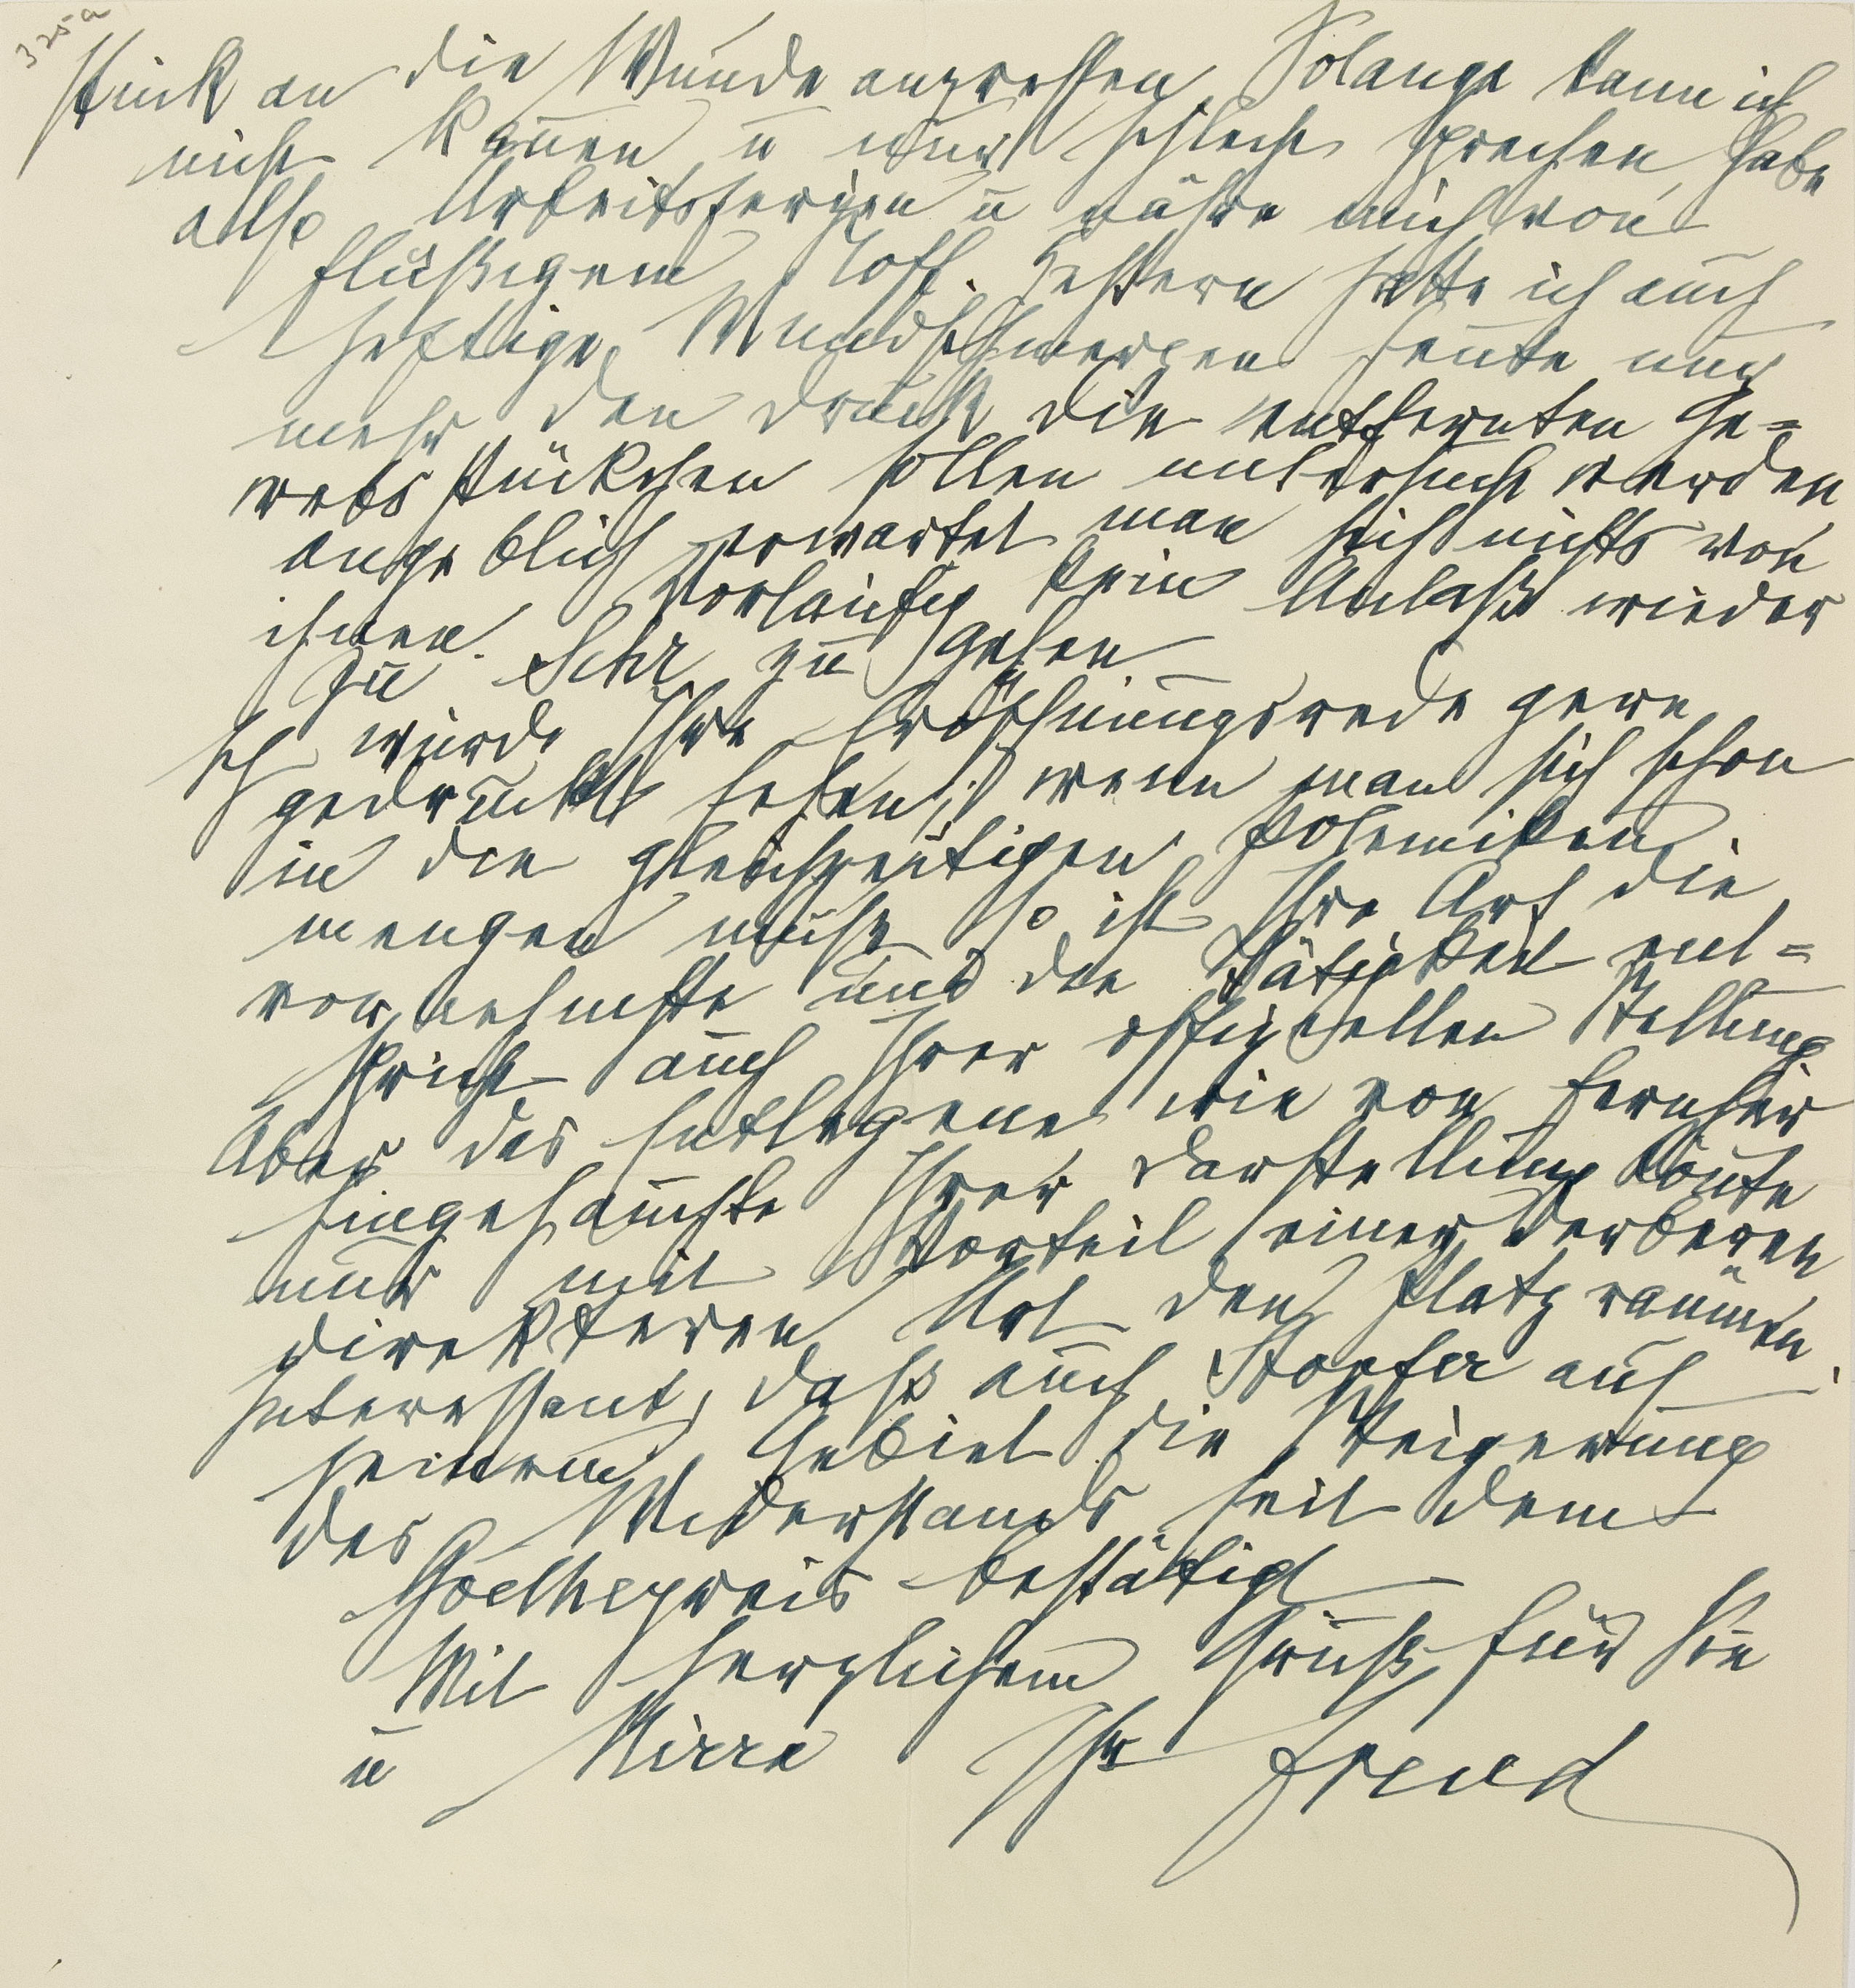 325a
stück an die Wunde anpressen. Solange kann ich
nicht kauen u nur schlecht sprechen, habe
also Arbeitsferien u nähre mich von
flüßigem Stoff. Gestern hatte ich auch
heftige Wundschmerzen heute nur
mehr den Druck die entfernten Ge=
websstückchen sollen untersucht werden
angeblich erwartet man sich nichts von
ihnen. Vorläufig kein Anlaß wieder
zu sehr zu gehen
Ich würde Ihre Eröffnungsrede gern
gedruckt sehen; wenn man sich schon
in die gleichzeitigen Polemiken
mengen muß, so ist Ihre Art die
vornehmste und der Tätigkeit ent=
spricht auch Ihrer offiziellen Stellung
Aber das Entlegene wie von fernher
hingehauchte Ihrer Darstellung könnte
nur mit Vorteil einer derberen
direkteren Art den Platz räumen.
Interessant, daß auch Storfer auf
seinem Gebiet die Steigerung
des Widerstands seit dem
Goethepreis bestätigt
Mit herzlichem Gruß für Sie
u Mirra Ihr Freud